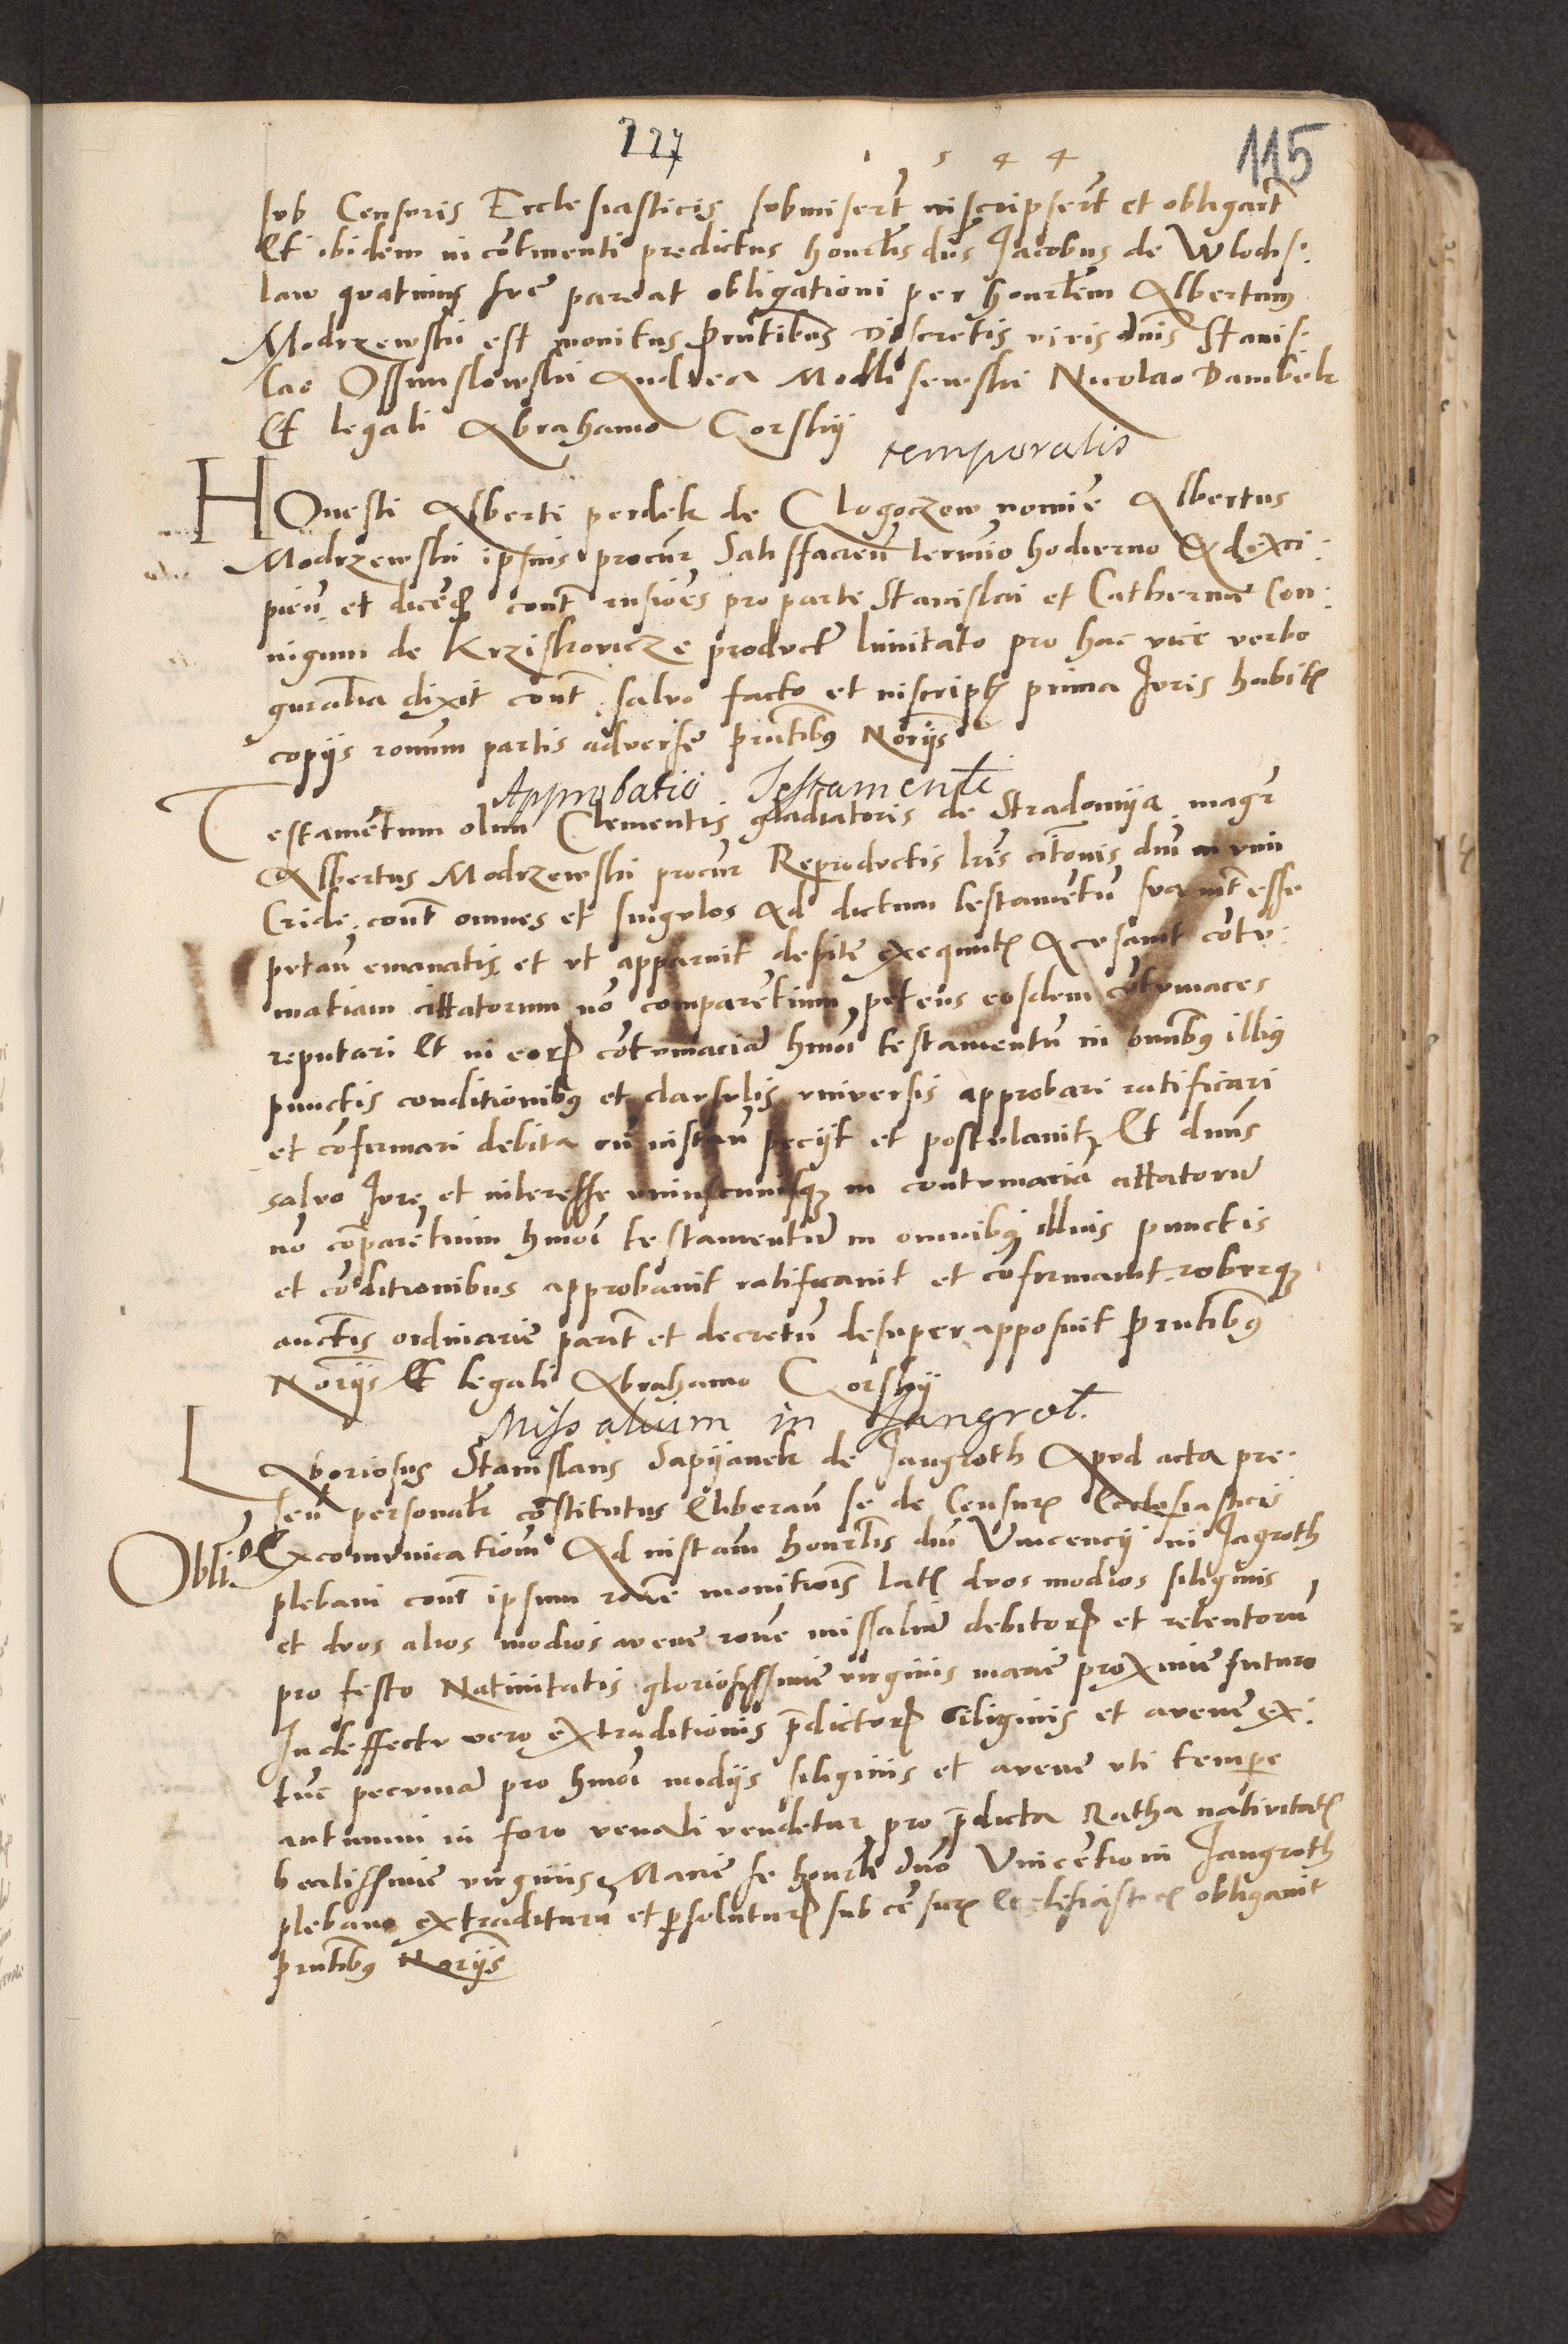 227
1 5 4 4
115
sub Censuris Ecclesiasticis submiserūt inscripserūt et obligarūt
Et ibidem in cōtinenti predictus honorłis dn̄s Jacobus de Wlodis:
law quatinus sue pareat obligationi per honorłem Albertum
Modrzewski est monitus Prn̄tibus Discretis viris dn̄is Stanis:
lao Andrea Nicolao Dambek
Et legali Abrahamo Gorskij
temporalis
HOnesti Alberti perdek de Clogoczow nomīe Albertus
Modrzewski ipsius procūr Satisfacieñ termīo hodierno Ad exci:
pieñ et dicēd cont̄ rōsiões pro parte Stanislai et Catherinē con:
iugum de Krziskovicze product̄ limitato pro hac vice verbo
gūralia dixit cont̄ salvo facto et inscript prima Juris habit
copiis ronum partis adverse prn̄tibus Nor̄iis
Approbatio Testamenti
Testamētum olim Clementis gladiatoris de Stradomija magr̄
Albertus Modrzewski procūr Reproductis lr̄is citōnis dn̄i in vim
Cride cont̄ omnes et singulos Ad dictum testamētū sua int̄esse
putañ emanatis et ut apparuit debite exequut Acusavit cōtu:
matiam cittatorum nō comparētium petens eosdem cōtumaces
reputari Et in eor cōtumaciā hmōi testamentū in omnibus illius
punctis conditionibus et clausulis universis approbari ratificari
et cōfirmari debita cū instañ peciit et postulavit Et dn̄us
salvo Jure et interesse uniuscuiusq in contumaciā cittatorū
nō cōparētium hmōi testamentū in omnibus illius punctis
et cōditionibus approbavit ratificavit et cōfirmavit roburq
auct̄is ordinarie parit̄ et decretū desuper apposuit Prn̄tibus
Nor̄iis Et legali Abrahamo Gorskij
Missalium in Jangrot.
LAboriosus Stanislaus Sapijanek de Jangroth Apud acta pre:
señ personalr̄ cōstitutus Eliberañ se de Censur Ecclesiasticis
Obli:o
Excomunicationū Ad instañ honorłis dn̄i Vincencij in Jagroth
plebani cont̄ ipsum ronē monitiōis lat duos modios siliginis
et duos alios modios avene ronē missaliū debitor et retentorū
pro festo Nativitatis gloriosissime virginis marie proxime futuro
In deffectu vero extraditionis p̄dictor siliginis et avene ex:
tūc pecuniā pro hmōi modiis siliginis et avene uti tempore
autumni in foro venali vendetur pro p̄dicta Ratha nativitat
beatissime virginis Marie se honorłi dn̄o Vincētio in Jangroth
plebano extraditurū et psoluturū sub cēsur Ecclesiastic obligavit
prn̄tibus Nor̄iis